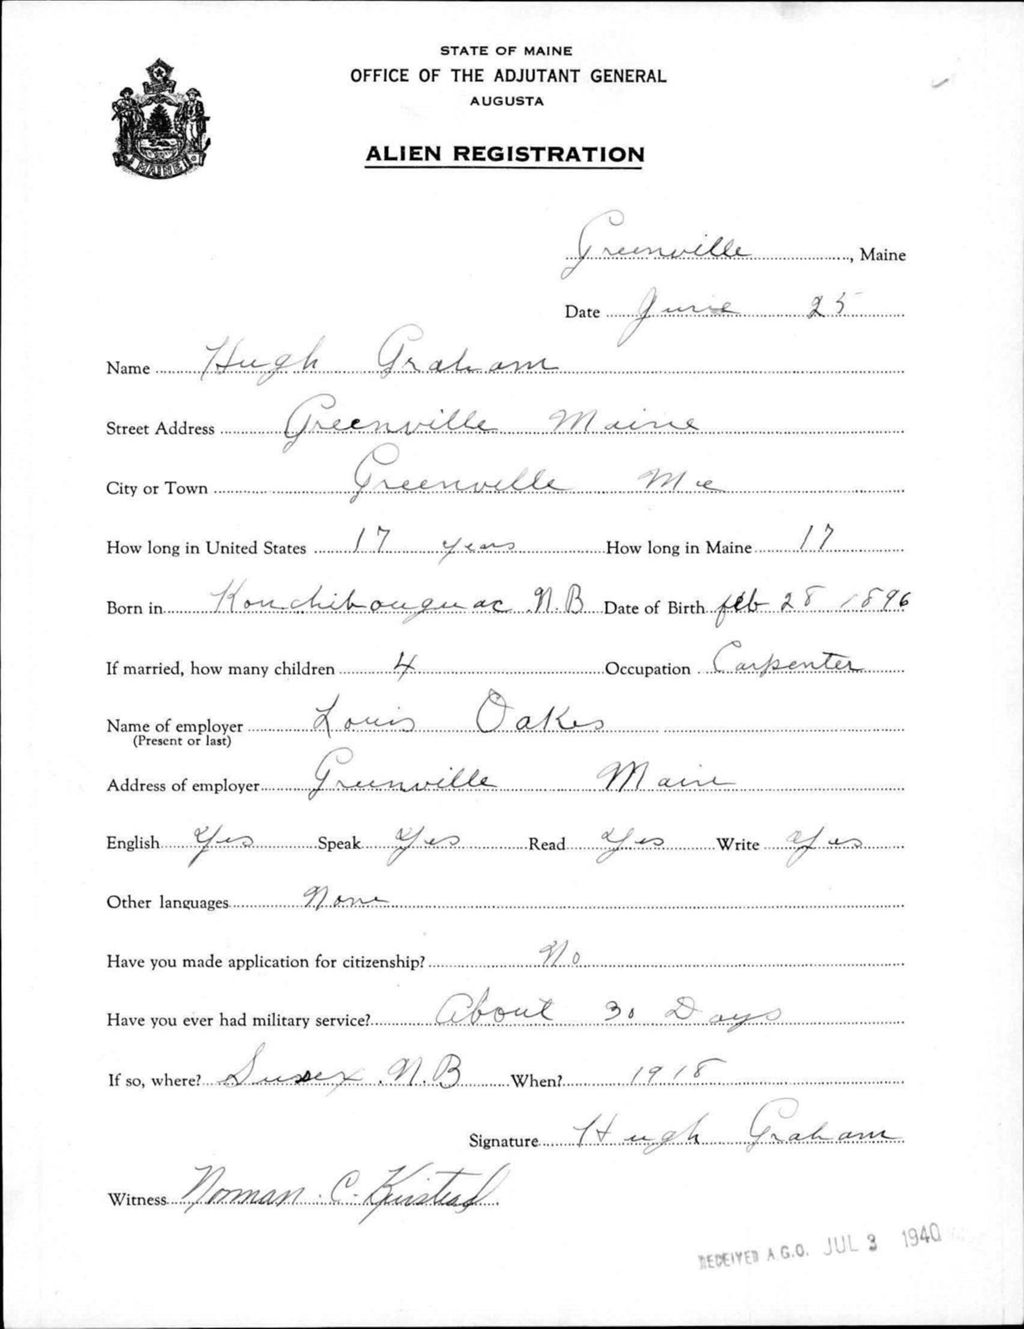 STATE OF MAINE
OFFICE OF THE ADJUTANT GENERAL
AUGUSTA
ALIEN REGISTRATION
MAINE
Greenville, Maine
Date June 25
Name Hugh Graham
Street Address Greenville Maine
City or Town Greenville Me
How long in United States 17 years How long in Maine 17
Born in Kouchibouguac N.B Date of Birth feb 28 1896
If married, how many children 4 Occupation Carpenter
Name of employer Louis Oakes
(Present or last)
Address of employer Greenville Maine
English Yes Speak Yes Read Yes Write Yes
Other languages None
Have you made application for citizenship? No
Have you ever had military service? About 30 Days
If so, where? Sussex N.B When? 1918
Signature Hugh Graham
Witness Norman C.
RECEIVED A.G.O. JUL 3 1940